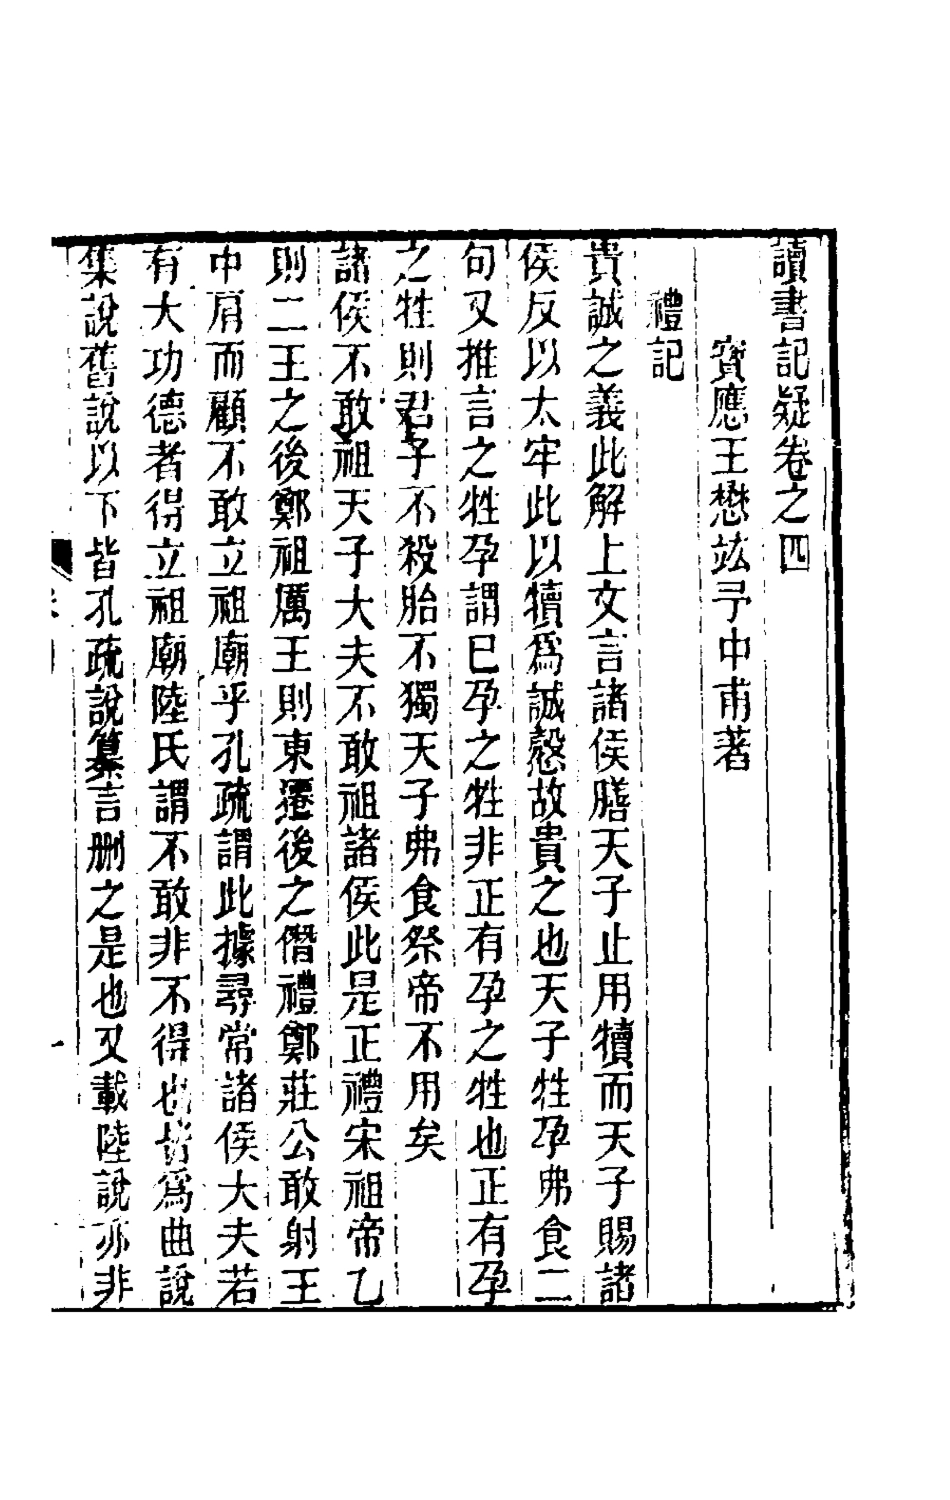 讀書記疑卷之四
寶應王懋竑予中甫著
禮記
貴誠之義此解上文言諸侯膳天子止用犢而天子賜諸
侯反以太牢此以犢爲誠慤故貴之也天子牲孕弗食二
句又推言之牲孕謂已孕之牲非正有孕之牲也正有孕
之牲則君子不殺胎不獨天子弗食祭帝不用矣
諸侯不敢祖天子大夫不敢祖諸侯此是正禮宋祖帝乙
則二王之後鄭祖厲王則東遷後之僭禮鄭莊公敢射王
中肩而顧不敢立祖廟乎孔疏謂此據尋常諸侯大夫若
有大功德者得立祖廟陸氏謂不敢非不得也皆爲曲說
集說舊說以下皆孔疏說纂言刪之是也又載陸說亦非